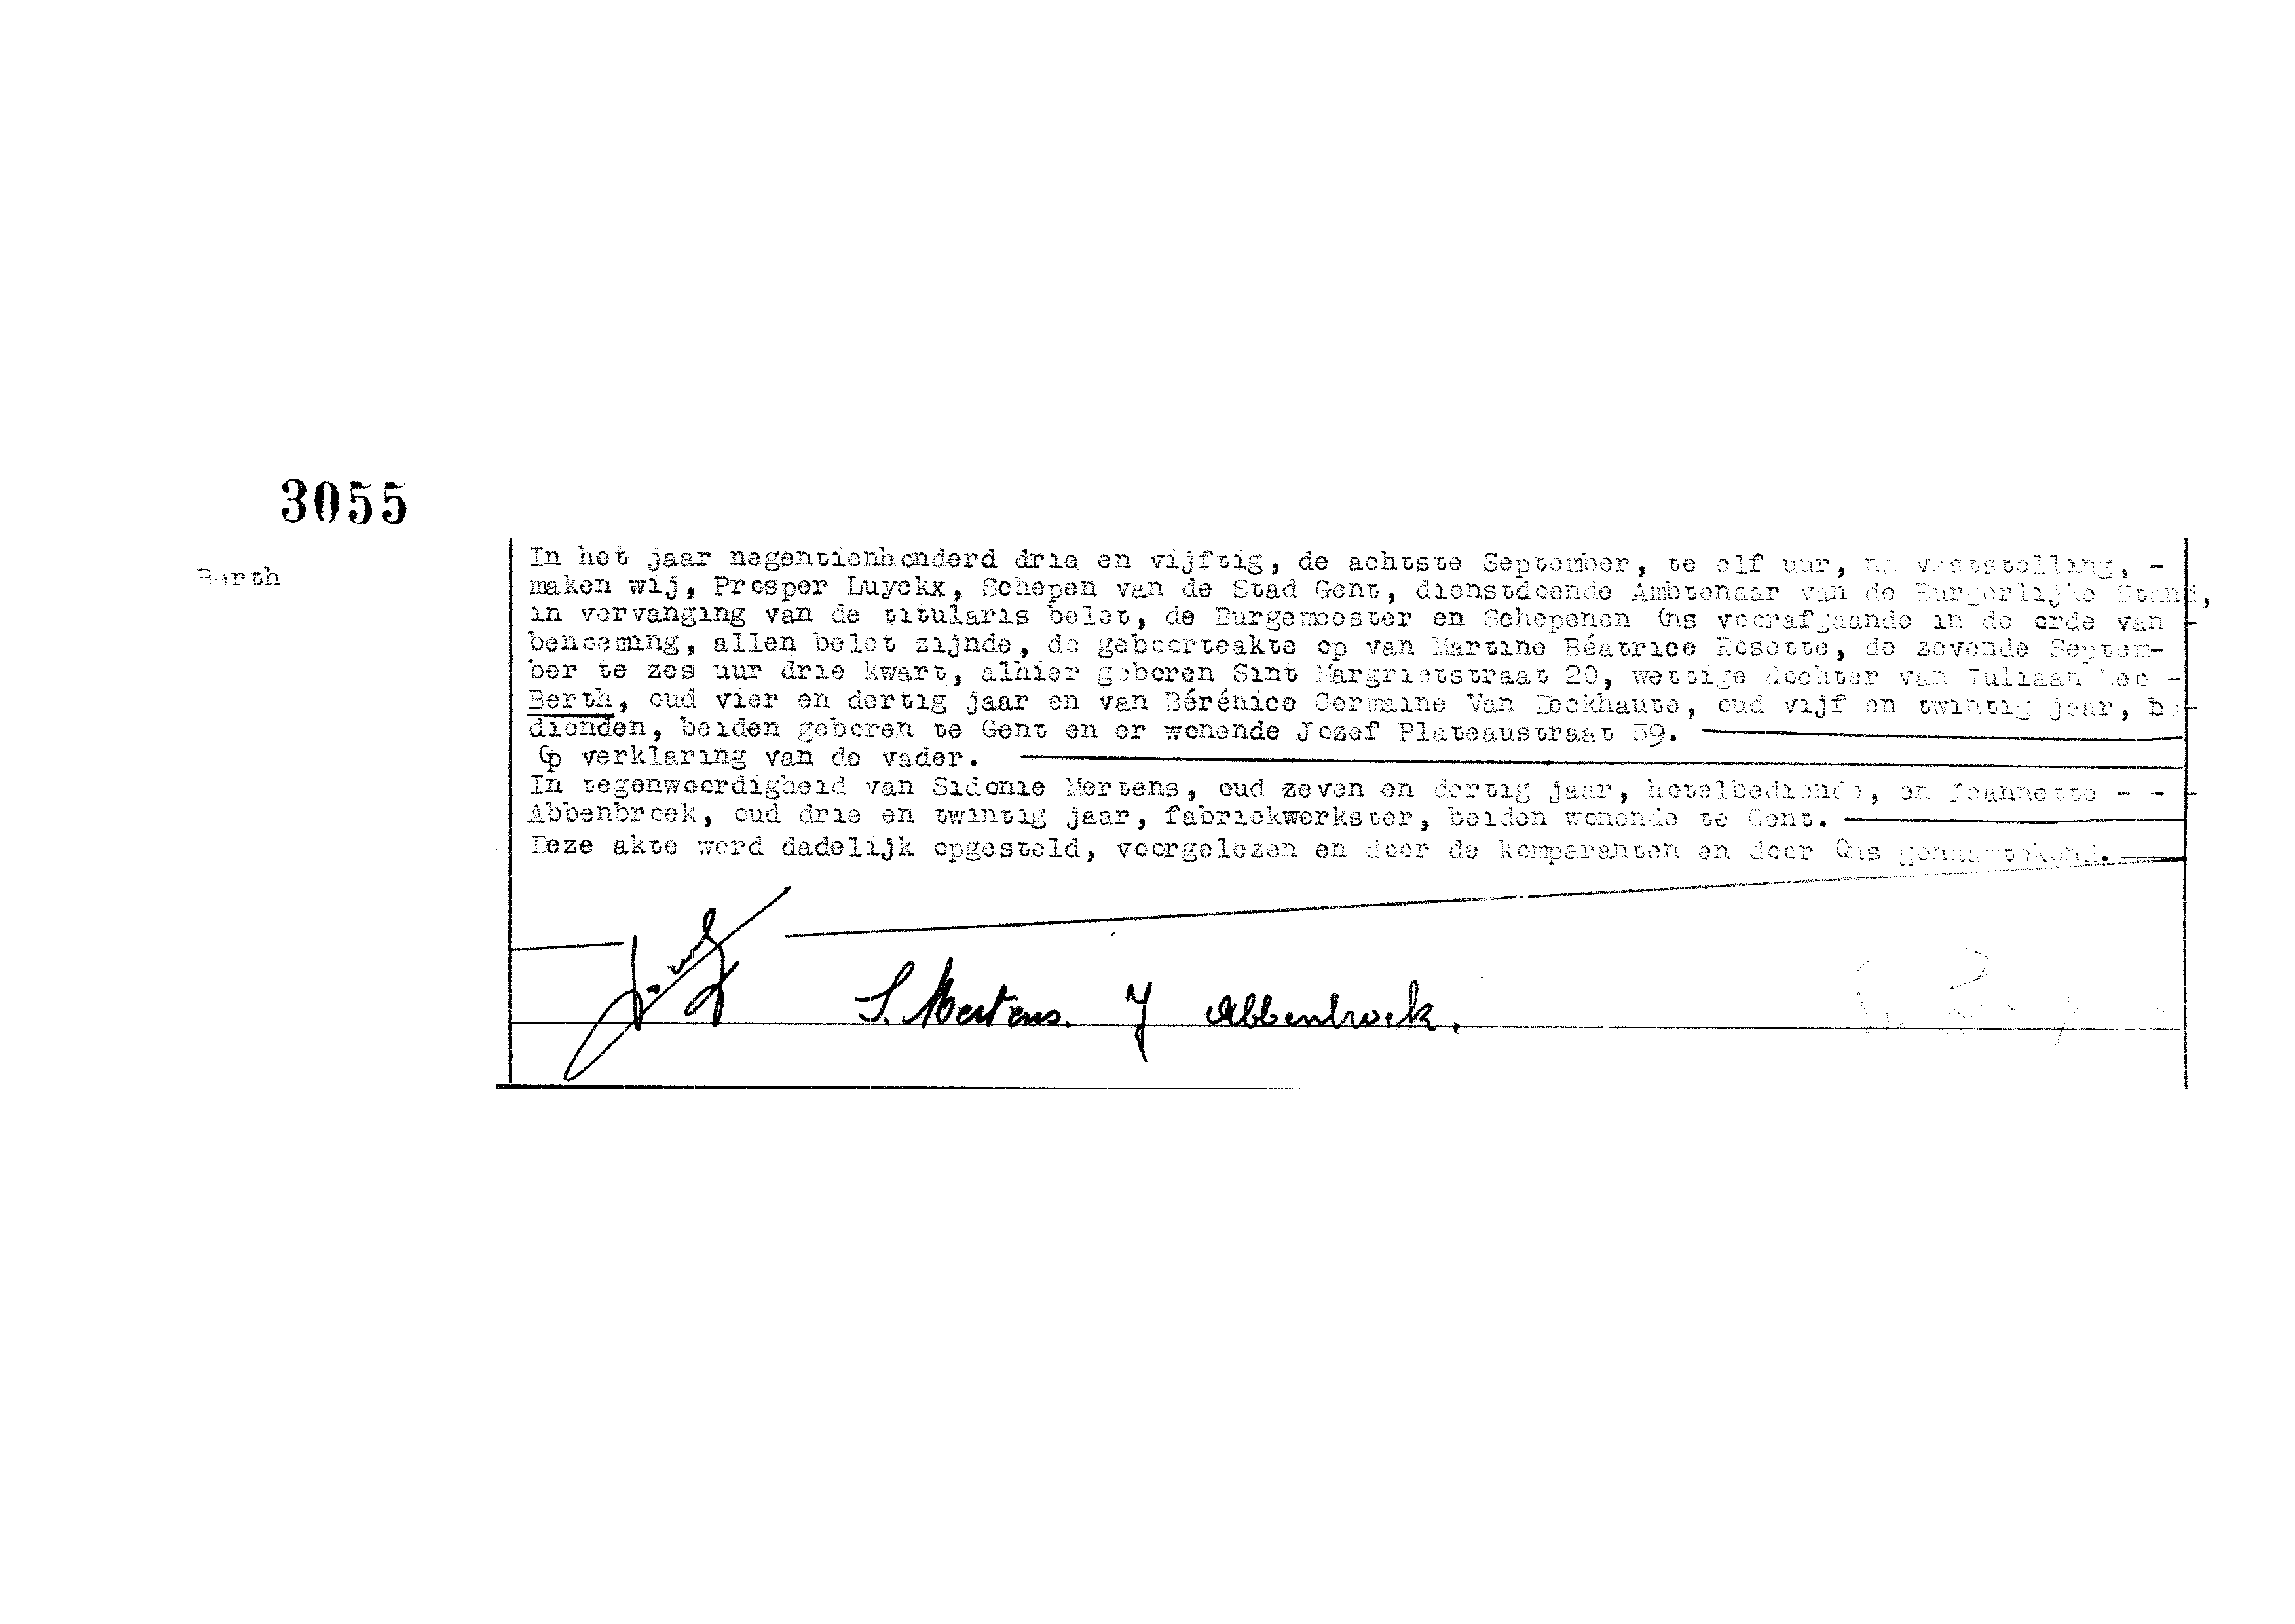 3055
Berth
In het jaar negentienhonderd drie en vijftig, de achtste September, te elf uur, na vaststelling, -
maken wij, Prosper Luyckx, Schepen van de Stad Gent, dienstdoende Ambtenaar van de Burgerlijke Stand,
in vervanging van de titularis belet, de Burgemeester en Schepenen Ons voorafgaande in de orde van -
benoeming, allen belet zijnde, de geboorteakte op van Martine Béatrice Rosette, de zevende Septem-
ber te zes uur drie kwart, alhier geboren Sint Margrietstraat 20, wettige dochter van Juliaan Leo -
Berth, oud vier en dertig jaar en van Bérénice Germaine Van Eeckhaute, oud vijf en twintig jaar, be-
dienden, beiden geboren te Gent en er wonende Jozef Plateaustraat 59.
Op verklaring van de vader.
In tegenwoordigheid van Sidonie Mertens, oud zeven en dertig jaar, hotelbediende, en Jeannette - - -
Abbenbroek, oud drie en twintig jaar, fabriekwerkster, beiden wonende te Gent.
Deze akte werd dadelijk opgesteld, voorgelezen en door de komparanten en door Ons genaamtekend.
S. Mertens. J Abbenbroek.